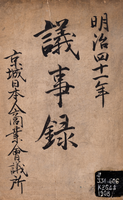 明治四十一年
議事録
京城日本人商業會議所